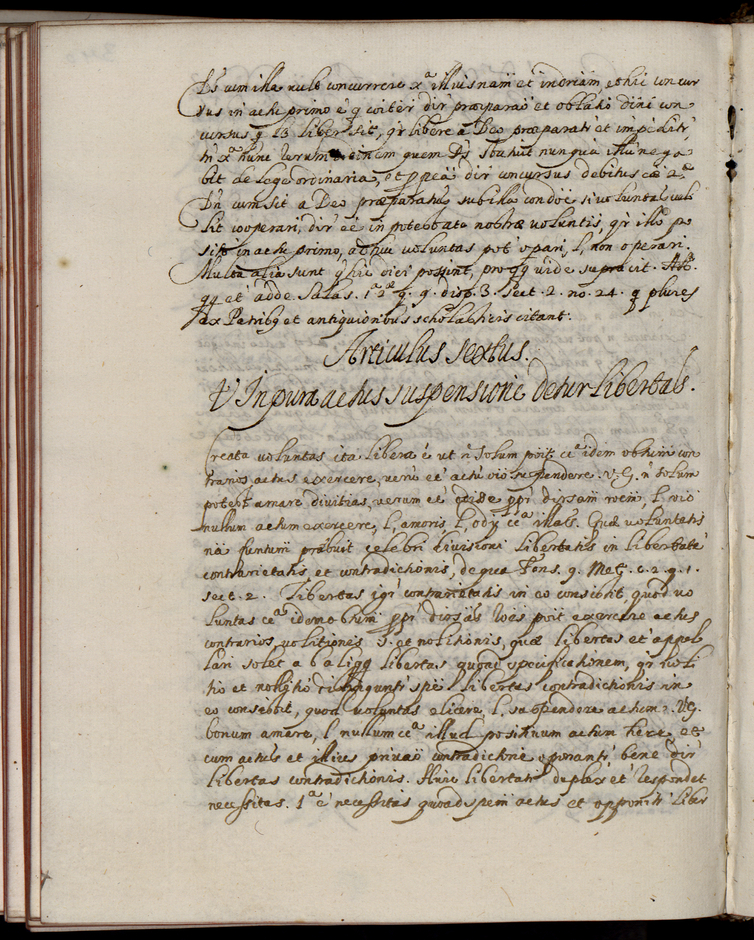 Ds cum illa vult concurrere xa illius nam et indriam, et hic concur
sus in actu primo é q coiter dir præparao et oblatio dini con
cursus q liber sit, qr libere a Deo præparatr et impeditr
tn xa hunc rerum dinem quem Ds statuit nunquã illũ nega
bit de lege ordinaria, et ppea dir concursus debitus cæ 2æ
Dn cum sit a Deo præparatus sub illa condõe si voluntas vel
lit cooperari, dir eé in potestate nostræ voluntis, qr illo po
sito in actu primo, adhuc voluntas pot opari, l, non operari.
Multa alia sunt q hic dici possint, pro qq vide supra cit. Aut.
qq et adde Salas. 1a 2æ q. 9. disp. 3. sect. 2. no. 24. q plures
ex Patribq et antiquioribus scholasticis citant.
Articulus sextus.
V In pura actus suspensione detur libertas.
Creata voluntas ita libera é ut ñ solum poit ca idem obtum con
trarios actus exercere, verũ eé actũ suspendere. V.G. ñ solum
potest amare divitias, verum eé odisse ppr dirsam roem l, vio
nullum actum exercere, l, amoris l, odij ca illas. Quæ voluntatis
na funtum præbuit celebri divisioni libertatis in libertatẽ
contrarietatis, et contradictionis, de qua Fons. 9. Met. c. 2. q. 1.
sect. 2. Libertas igr contrarietatis in eo consistit quod vo
luntas ca idem obtum ppr dirsas roes poit exercere actus
contrarios, volitionis s. et nolitionis, quæ libertas et appel
lari solet a baliqq libertas quoad specificationem, qr voli
tio et nolitio distingunti spe. Libertas contradictionis in
eo consistit, quod voluntas elicere l, suspendere actum. V.G.
bonum amere, l nullum ca illud positiuum actum here, et
cum actus et illius priuao contradictorie oponanti, bene dir
libertas contradictionis. Huic libertati duplex et respondet
necessitas. 1a é necessitas quoad spem actus et opponitr liber